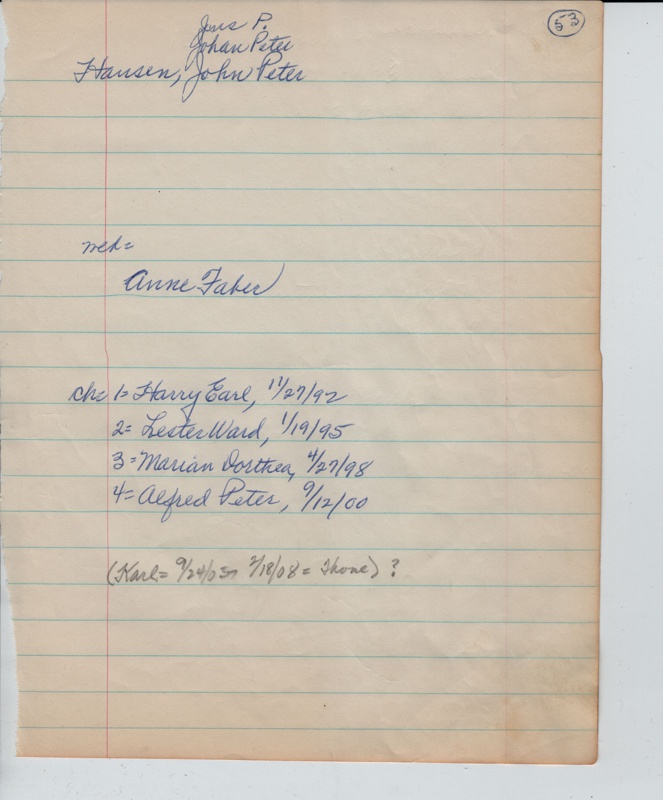 53
Jens P.
Johan Peter
Hansen, John Peter
wed=
Anne Faber
ch= 1= Harry Earl, 11/27/92
2= Lester Ward, 1/19/95
3= Marian Dorthea, 4/27/98
4= Alfred Peter, 9/12/00
(Karl= 9/24/05 2/18/08 = Thone) ?